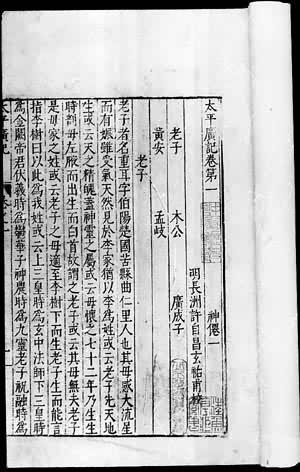 太平廣記卷第一
神僊一
明長洲許自昌玄祐甫校
老子 木公 廣成子
黃安 孟岐
老子
老子者名重耳字伯陽楚國苦縣曲仁里人也其母感大流星
而有娠雖受氣天然見於李家猶以李為姓或云老子先天地
生或云天之精魄蓋神靈之屬或云母懷之七十二年乃生生
時剖母左腋而出生而白首故謂之老子或云其母無夫老子
是母家之姓或云老子之母適至李樹下而生老子生而能言
指李樹曰以此為我姓或云上三皇時為玄中法師下三皇時
為金闕帝君伏羲時為鬱華子神農時為九靈老子祝融時為
太平廣記